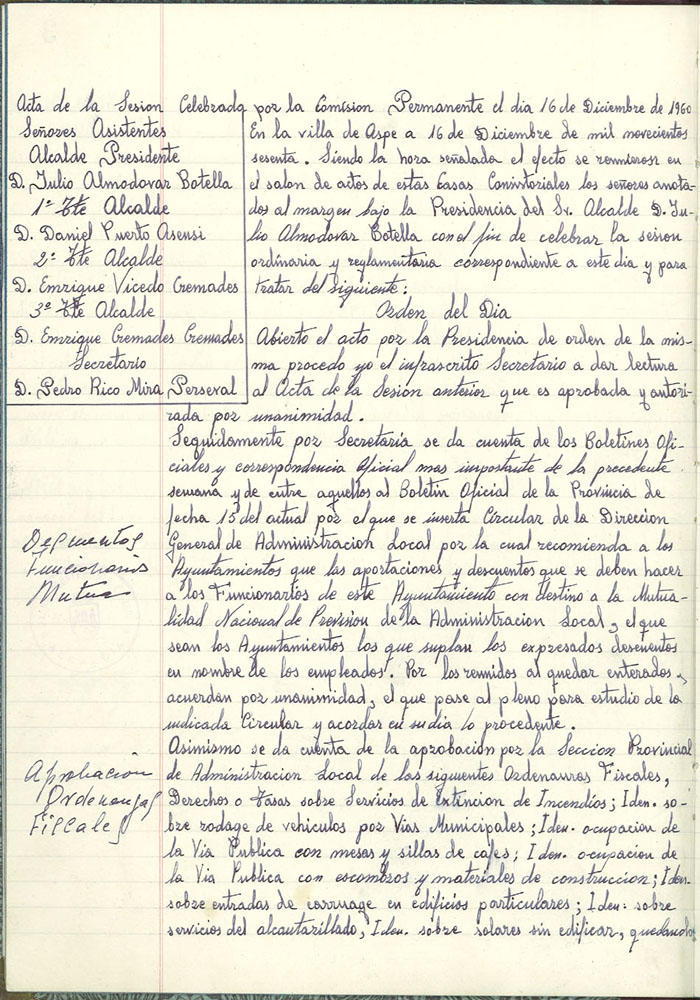 Acta de la Sesion Celebrada por la Comision Permanente el dia 16 de Diciembre de 1960
Señores Asistentes
Alcalde Presidente
D. Julio Almodovar Botella
1º Tte Alcalde
D. Daniel Puerto Asensi
2º Tte Alcalde
D. Emrrique Vicedo Cremades
3º Tte Alcalde
D. Emrrique Cremades Cremades
Secretario
D. Pedro Rico Mira Perseval
En la villa de Aspe a 16 de Diciembre de mil novecientos
sesenta. Siendo la hora señalada el efecto se reunieror en
el salon de actos de estas Casas Conistoriales los señores anota-
dos al margen bajo la Presidencia del Sr. Alcalde D. Ju-
lio Almodovar Botella con el fin de celebrar la sesion
ordinaria y reglamentaria correspondiente a este dia y para
tratar del siguiente:
Orden del Dia
Abierto el acto por la Presidencia de orden de la mis-
ma procedo yo el infrascrito Secretario a dar lectura
al Acta de la Sesion anterior que es aprobada y autori-
rada por unanimidad.
Seguidamente por Secretaría se da cuenta de los Boletines Ofi-
ciales y correspondencia Oficial mas importante de la precedente
semana y de entre aquellos al Boletin Oficial de la Provincia de
fecha 15 del actual por el que se inserta Circular de la Direccion
General de Administracion Local por la cual recomienda a los
Ayuntamientos que las aportaciones y descuentos que se deben hacer
a los Funcionarios de este Ayuntamiento con destino a la Mutua-
lidad Nacional de Prevision de la Administracion Local, el que
sean los Ayuntamientos los que suplan los expresados descuentos
en nombre de los empleados. Por los reunidos al quedar enterados,
acuerdan por unanimidad, el que pase al pleno para estudio de la
indicada Circular y acordar en su dia lo procedente.
Descuentos
Funcionarios
Mutua
Asimismo se da cuenta de la aprobacion por la Seccion Provincial
de Administracion Local de las siguientes Ordenanzas Fiscales,
Derechos o Tasas sobre Servicios de Extincion de Incendios; Iden. so-
bre rodage de vehiculos por Vias Municipales; Iden. ocupacion de
la Via Publica con mesas y sillas de cafes; Iden. ocupacion de
la Via Publica con escombros y materiales de construccion; Iden
sobre entradas de carruage en edificios particulares; Iden: sobre
servicios del alcantarillado; Iden. sobre solares sin edificar, quedando
Aprobación
Ordenanzas
Fiscales